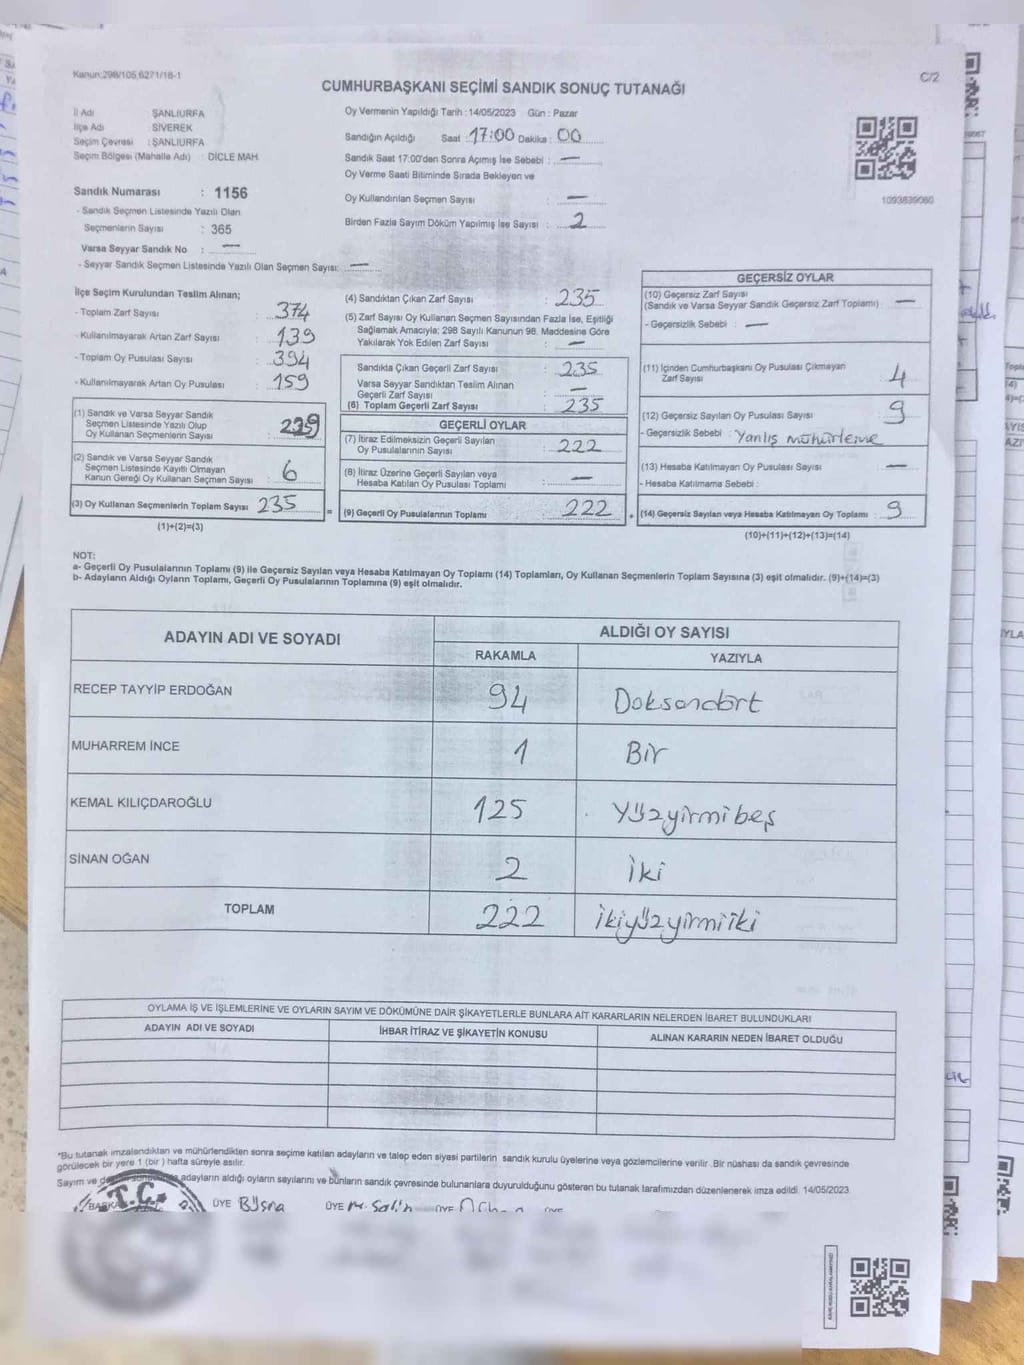 Kanun:298/105,6271/18-1
C/2
CUMHURBAŞKANI SEÇİMİ SANDIK SONUÇ TUTANAĞI
İl Adı ŞANLIURFA
İlçe Adı SİVEREK
Seçim Çevresi : ŞANLIURFA
Seçim Bölgesi (Mahalle Adı) : DİCLE MAH.
Sandık Numarası : 1156
- Sandık Seçmen Listesinde Yazılı Olan
Seçmenlerin Sayısı : 365
Varsa Seyyar Sandık No : —
- Seyyar Sandık Seçmen Listesinde Yazılı Olan Seçmen Sayısı: —
Oy Vermenin Yapıldığı Tarih : 14/05/2023 Gün : Pazar
Sandığın Açıldığı Saat : 17:00 Dakika : 00
Sandık Saat 17:00'den Sonra Açımış İse Sebebi : —
Oy Verme Saati Bitiminde Sırada Bekleyen ve
Oy Kullandırılan Seçmen Sayısı : —
Birden Fazla Sayım Döküm Yapılmış İse Sayısı : 2
1093839060
İlçe Seçim Kurulundan Teslim Alınan;
- Toplam Zarf Sayısı : 374
- Kullanılmayarak Artan Zarf Sayısı : 139
- Toplam Oy Pusulası Sayısı : 394
- Kullanılmayarak Artan Oy Pusulası : 159
(1) Sandık ve Varsa Seyyar Sandık
Seçmen Listesinde Yazılı Olup
Oy Kullanan Seçmenlerin Sayısı :
(2) Sandık ve Varsa Seyyar Sandık
Seçmen Listesinde Kayıtlı Olmayan
Kanun Gereği Oy Kullanan Seçmen Sayısı : 6
(3) Oy Kullanan Seçmenlerin Toplam Sayısı 235
(1)+(2)=(3)
(4) Sandıktan Çıkan Zarf Sayısı : 235
(5) Zarf Sayısı Oy Kullanan Seçmen Sayısından Fazla İse, Eşitliği
Sağlamak Amacıyla; 298 Sayılı Kanunun 98. Maddesine Göre
Yakılarak Yok Edilen Zarf Sayısı : —
Sandıkta Çıkan Geçerli Zarf Sayısı : 235
Varsa Seyyar Sandıktan Teslim Alınan
Geçerli Zarf Sayısı : —
(6) Toplam Geçerli Zarf Sayısı : 235
GEÇERLİ OYLAR
(7) İtiraz Edilmeksizin Geçerli Sayılan
Oy Pusulalarının Sayısı : 222
(8) İtiraz Üzerine Geçerli Sayılan veya
Hesaba Katılan Oy Pusulası Toplamı : —
= (9) Geçerli Oy Pusulalarının Toplamı : 222
GEÇERSİZ OYLAR
(10) Geçersiz Zarf Sayısı
(Sandık ve Varsa Seyyar Sandık Geçersiz Zarf Toplamı) : —
- Geçersizlik Sebebi : —
(11) İçinden Cumhurbaşkanı Oy Pusulası Çıkmayan
Zarf Sayısı : 4
(12) Geçersiz Sayılan Oy Pusulası Sayısı : 9
- Geçersizlik Sebebi : Yanlış mühürleme
(13) Hesaba Katılmayan Oy Pusulası Sayısı : —
- Hesaba Katılmama Sebebi :
+ (14) Geçersiz Sayılan veya Hesaba Katılmayan Oy Toplamı : 9
(10)+(11)+(12)+(13)=(14)
NOT:
a- Geçerli Oy Pusulalarının Toplamı (9) ile Geçersiz Sayılan veya Hesaba Katılmayan Oy Toplamı (14) Toplamları, Oy Kullanan Seçmenlerin Toplam Sayısına (3) eşit olmalıdır. (9)+(14)=(3)
b- Adayların Aldığı Oyların Toplamı, Geçerli Oy Pusulalarının Toplamına (9) eşit olmalıdır.
ADAYIN ADI VE SOYADI
ALDIĞI OY SAYISI
RAKAMLA YAZIYLA
RECEP TAYYİP ERDOĞAN 94 Doksandört
MUHARREM İNCE 1 Bir
KEMAL KILIÇDAROĞLU 125 Yüzyirmibeş
SİNAN OĞAN 2 İki
TOPLAM 222 İkiyüzyirmiiki
OYLAMA İŞ VE İŞLEMLERİNE VE OYLARIN SAYIM VE DÖKÜMÜNE DAİR ŞİKAYETLERLE BUNLARA AİT KARARLARIN NELERDEN İBARET BULUNDUKLARI
ADAYIN ADI VE SOYADI İHBAR İTİRAZ VE ŞİKAYETİN KONUSU ALINAN KARARIN NEDEN İBARET OLDUĞU
*Bu tutanak imzalandıktan ve mühürlendikten sonra seçime katılan adayların ve talep eden siyasi partilerin sandık kurulu üyelerine veya gözlemcilerine verilir .Bir nüshası da sandık çevresinde
görülecek bir yere 1 (bir ) hafta süreyle asılır.
Sayım ve adayların aldığı oyların sayılarını ve bunların sandık çevresinde bulunanlara duyurulduğunu gösteren bu tutanak tarafımızdan düzenlenerek imza edildi. 14/05/2023
T.C.
ÜYE Büşra ÜYE M. Salih ÜYE